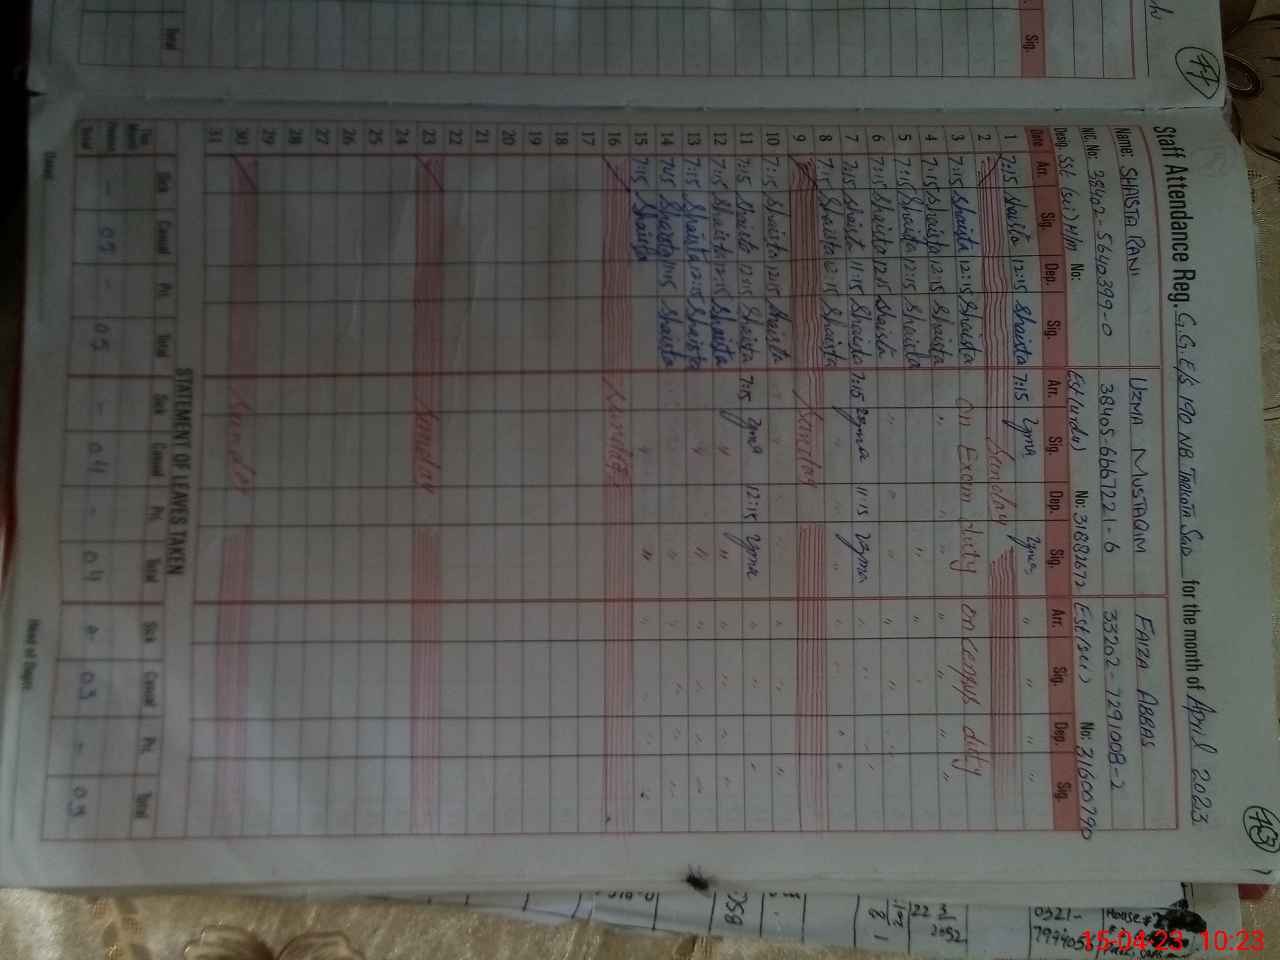 Staff Attendance Reg. G.G.E/S 190 NB for the month of April 2023
Name: SHAISTA RANI UZMA MUSTAQIM FAIZA ABBAS
NIC. No: 38402-5640399-0 38405-6667221-6 33202-7291008-2
Desig. SST (sci) H/m No: Est (urdu) No: 31882672 Est (sci) No: 31600790
Date Arr. Sig. Dep. Sig. Arr. Sig. Dep. Sig. Arr. Sig. Dep. Sig.
1 7:15 Shaista 12:15 Shaista 7:15 Uzma Uzma " " " "
2 Sunday
3 7:15 Shaista 12:15 Shaista on Exam duty on census duty
4 7:15 Shaista 12:15 Shaista
5 7:15 Shaista 12:15 Shaista
6 7:15 Shaista 12:15 Shaista
7 7:15 Shaista 11:15 Shaista 7:15 Uzma 11:15 Uzma
8 7:15 Shaista 12:15 Shaista
9 Sunday
10 7:15 Shaista 12:15 Shaista
11 7:15 Shaista 12:15 Shaista 7:15 Uzma 12:15 Uzma
12 7:15 Shaista 12:15 Shaista
13 7:15 Shaista 12:15 Shaista
14 Shaista 11:15 Shaista
15 7:15 Shaista
16 Sunday
17
18
19
20
21
22
23 Sunday
24
25
26
27
28
29
30 Sunday
31
STATEMENT OF LEAVES TAKEN
Sick Casual Pri. Total Sick Casual Pri. Total Sick Casual Pri. Total
This Month
Previous
Total - 05 - 05 - 04 - 04 - 03 - 03
Head of Deptt.
Total
Sig.
43
358
22 3/2052
0321-
House #
15-04-23 10:23